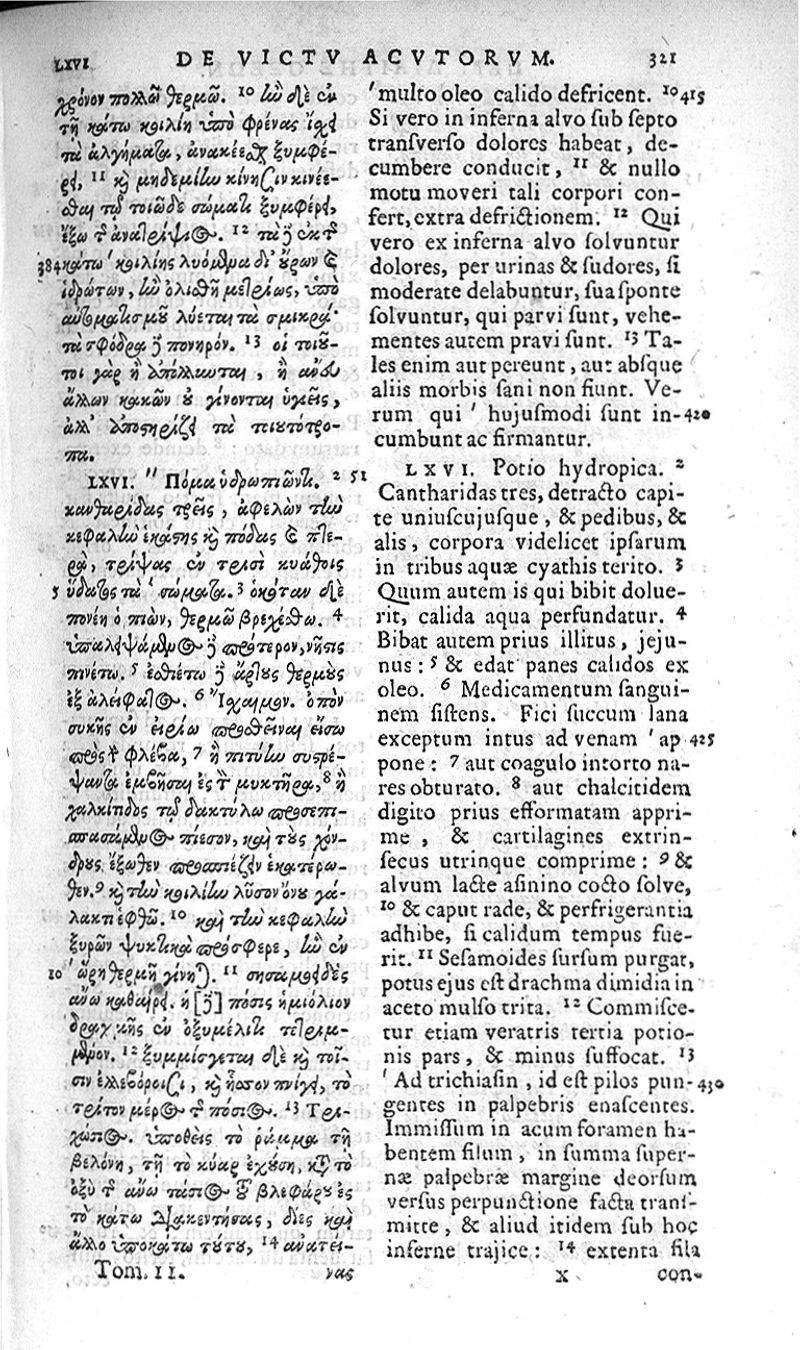 LXVI DE VICTV ACVTORVM. 321
χρόνον πολλῷ θερμῷ. 10 ἢν δὲ ἐν
τῇ κάτω κοιλίῃ ὑπὸ φρένας ἴσχῃ
τὰ ἀλγήματα, ἀνακέεσθαι ξυμφέ-
ρει, 11 καὶ μηδεμίην κίνησιν κινέε-
σθαι τῷ τοιῷδε σώματι ξυμφέρει,
ἔξω τῆς ἀνατρίψιος. 12 τὰ δὲ ἐκ τῆς
384 κάτω ' κοιλίης λυόμενα δι' οὔρων καὶ
ἱδρώτων, ἢν ὀλισθῇ μετρίως, ὑπὸ
αὐτοματισμοῦ λύεται τὰ σμικρά·
τὰ σφόδρα δὲ πονηρόν. 13 οἱ τοιοῦ-
τοι γὰρ ἢ ἀπόλλυνται, ἢ ἄνευ
ἄλλων κακῶν οὐ γίνονται ὑγιεῖς,
ἀλλ' ἀποστηρίζει τὰ τοιουτότρο-
πα.
LXVI. " Πόμα ὑδρωπιῶντι. 2 51
κανθαρίδας τρεῖς, ἀφελὼν τὴν
κεφαλὴν ἑκάστης καὶ πόδας καὶ πτε-
ρὰ, τρίψας ἐν τρισὶ κυάθοις
5 ὕδατος τὰ ' σώματα. 3 ὁκόταν δὲ
πονέῃ ὁ πιὼν, θερμῷ βρεχέσθω. 4
ὑπαλειψάμενος δὲ πρότερον, νῆστις
πινέτω. 5 ἐσθιέτω δὲ ἄρτους θερμοὺς
ἐξ ἀλείφατος. 6 Ἴσχαιμον. ὀπὸν
συκῆς ἐν εἰρίῳ προσθεῖναι εἴσω
πρὸς τὴν φλέβα, 7 ἢ πιτύην συστρέ-
ψαντα ἐμβῦσαι ἐς τὸν μυκτῆρα, 8 ἢ
χαλκίτιδος τῷ δακτύλῳ προσεπι-
σπασάμενος πίεσον, καὶ τοὺς χόν-
δρους ἔξωθεν προσπιέζειν ἑκατέρω-
θεν. 9 καὶ τὴν κοιλίην λῦσον ὄνου γά-
λακτι ἑφθῷ. 10 καὶ τὴν κεφαλὴν
ξυρῶν ψυκτικὰ πρόσφερε, ἢν ἐν
10 ' ὥρῃ θερμῇ γίνηται. 11 σησαμοειδὲς
ἄνω καθαίρει. ἡ [δὲ] πόσις ἡμιόλιον
δραχμῆς ἐν ὀξυμέλιτι τετριμ-
μένον. 12 ξυμμίσγεται δὲ καὶ τοῖ-
σιν ἐλλεβόροισι, καὶ ἧσσον πνίγει, τὸ
τρίτον μέρος τῆς πόσιος. 13 Τρι-
χώσιος. ὑποθεὶς τὸ ῥάμμα τῇ
βελόνῃ, τῇ τὸ κύαρ ἐχούσῃ, κατὰ τὸ
ὀξὺ τῆς ἄνω τάσιος τοῦ βλεφάρου ἐς
τὸ κάτω διακεντήσας, δίες καὶ
ἄλλο ὑποκάτω τούτου, 14 ἀνατεί-
Tom. II. νας
' multo oleo calido defricent. 10 415
Si vero in inferna alvo sub septo
transverso dolores habeat, de-
cumbere conducit, 11 & nullo
motu moveri tali corpori con-
fert, extra defrictionem. 12 Qui
vero ex inferna alvo solvuntur
dolores, per urinas & sudores, si
moderate delabuntur, sua sponte
solvuntur, qui parvi sunt, vehe-
mentes autem pravi sunt. 13 Ta-
les enim aut pereunt, aut absque
aliis morbis sani non fiunt. Ve-
rum qui ' hujusmodi sunt in- 420
cumbunt ac firmantur.
LXVI. Potio hydropica. 2
Cantharidas tres, detracto capi-
te uniuscujusque, & pedibus, &
alis, corpora videlicet ipsarum
in tribus aquæ cyathis terito. 3
Quum autem is qui bibit dolue-
rit, calida aqua perfundatur. 4
Bibat autem prius illitus, jeju-
nus: 5 & edat panes calidos ex
oleo. 6 Medicamentum sangui-
nem sistens. Fici succum lana
exceptum intus ad venam ' ap 425
pone: 7 aut coagulo intorto na-
res obturato. 8 aut chalcitidem
digito prius efformatam appri-
me, & cartilagines extrin-
secus utrinque comprime: 9 &
alvum lacte asinino cocto solve,
10 & caput rade, & perfrigerantia
adhibe, si calidum tempus fue-
rit. 11 Sesamoides sursum purgat,
potus ejus est drachma dimidia in
aceto mulso trita. 12 Commisce-
tur etiam veratris tertia potio-
nis pars, & minus suffocat. 13
' Ad trichiasin, id est pilos pun- 430
gentes in palpebris enascentes.
Immissum in acum foramen ha-
bentem filum, in summa super-
næ palpebræ margine deorsum
versus perpunctione facta trans-
mitte, & aliud itidem sub hoc
inferne trajice: 14 extenta fila
X con-